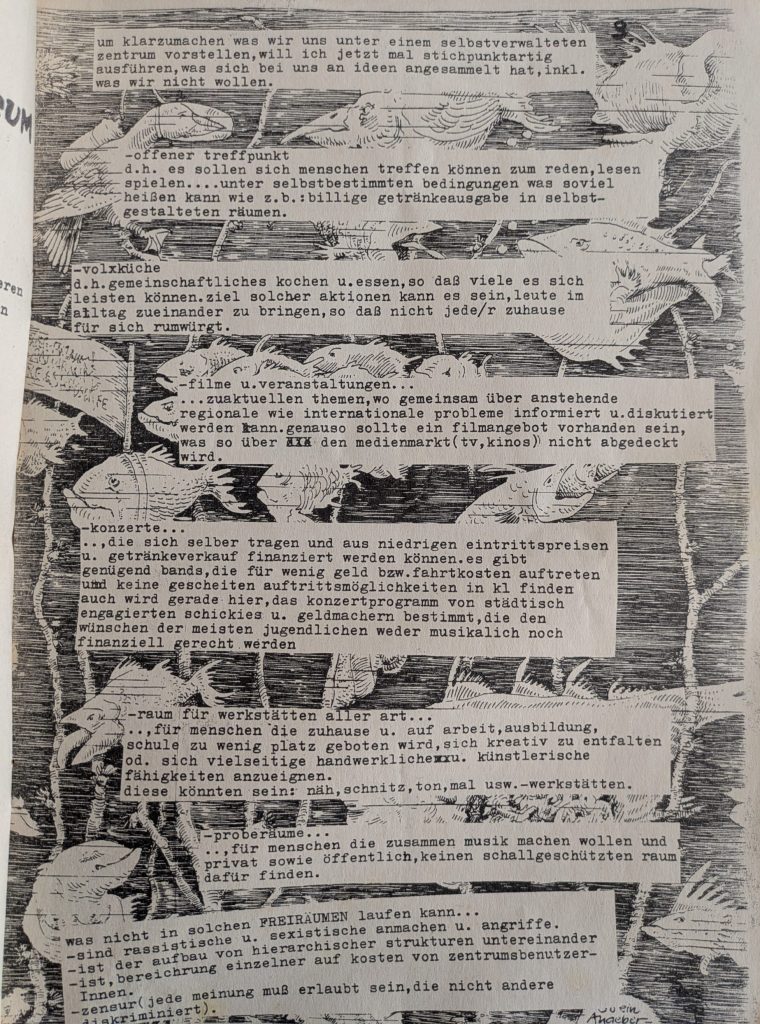 9
um klarzumachen was wir uns unter einem selbstverwalteten
zentrum vorstellen,will ich jetzt mal stichpunktartig
ausführen,was sich bei uns an ideen angesammelt hat,inkl.
was wir nicht wollen.
-offener treffpunkt
d.h. es sollen sich menschen treffen können zum reden,lesen
spielen....unter selbstbestimmten bedingungen was soviel
heißen kann wie z.b.:billige getränkeausgabe in selbst-
gestalteten räumen.
-volxküche
d.h.gemeinschaftliches kochen u.essen,so daß viele es sich
leisten können.ziel solcher aktionen kann es sein,leute im
alltag zueinander zu bringen,so daß nicht jede/r zuhause
für sich rumwürgt.
-filme u.veranstaltungen...
...zuaktuellen themen,wo gemeinsam über anstehende
regionale wie internationale probleme informiert u.diskutiert
werden kann.genauso sollte ein filmangebot vorhanden sein,
was so über xxx den medienmarkt(tv,kinos) nicht abgedeckt
wird.
-konzerte...
..,die sich selber tragen und aus niedrigen eintrittspreisen
u. getränkeverkauf finanziert werden können.es gibt
genügend bands,die für wenig geld bzw.fahrtkosten auftreten
und keine gescheiten auftrittsmöglichkeiten in kl finden
auch wird gerade hier,das konzertprogramm von städtisch
engagierten schickies u. geldmachern bestimmt,die den
wünschen der meisten jugendlichen weder musikalich noch
finanziell gerecht werden
-raum für werkstätten aller art...
..,für menschen die zuhause u. auf arbeit,ausbildung,
schule zu wenig platz geboten wird,sich kreativ zu entfalten
od. sich vielseitige handwerkliche u. künstlerische
fähigkeiten anzueignen.
diese könnten sein: näh,schnitz,ton,mal usw.-werkstätten.
-proberäume...
..,für menschen die zusammen musik machen wollen und
privat sowie öffentlich,keinen schallgeschützten raum
dafür finden.
was nicht in solchen FREIRÄUMEN laufen kann...
-sind rassistische u. sexistische anmachen u. angriffe.
-ist der aufbau von hierarchischer strukturen untereinander
-ist,bereichrung einzelner auf kosten von zentrumsbenutzer-
Innen.
-zensur(jede meinung muß erlaubt sein,die nicht andere
diskriminiert).
Angeber